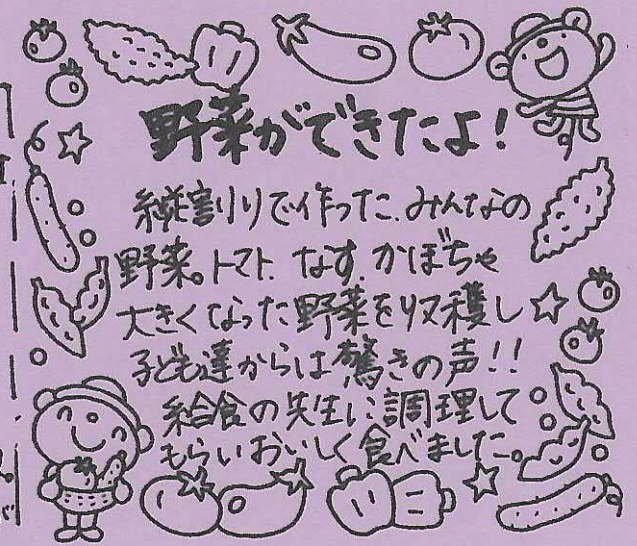 野菜ができたよ!
縦割りで作った、みんなの
野菜。トマト、なす、かぼちゃ
大きくなった野菜を収穫し
子ども達からは驚きの声!!
給食の先生に調理して
もらいおいしく食べました。